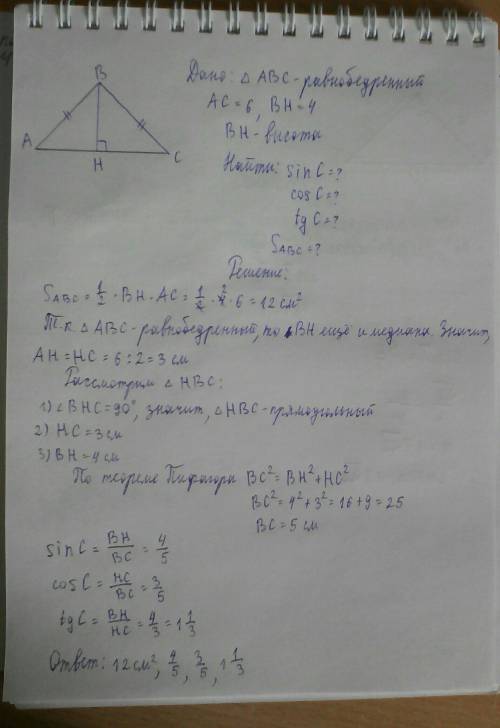 B
A
H
C
Дано: △ ABC - равнобедренный
AC = 6, BH = 4
BH - высота
Найти: sin C = ?
cos C = ?
tg C = ?
S_ABC = ?
Решение:
S_ABC = 1/2 · BH · AC = 1/2 · 4 · 6 = 12 см²
Т.к. △ ABC - равнобедренный, то BH ещё и медиана. Значит,
AH = HC = 6 : 2 = 3 см
Рассмотрим △ HBC:
1) ∠BHC = 90°, значит, △ HBC - прямоугольный
2) HC = 3 см
3) BH = 4 см
По теореме Пифагора BC² = BH² + HC²
BC² = 4² + 3² = 16 + 9 = 25
BC = 5 см
sin C = BH/BC = 4/5
cos C = HC/BC = 3/5
tg C = BH/HC = 4/3 = 1 1/3
Ответ: 12 см², 4/5, 3/5, 1 1/3